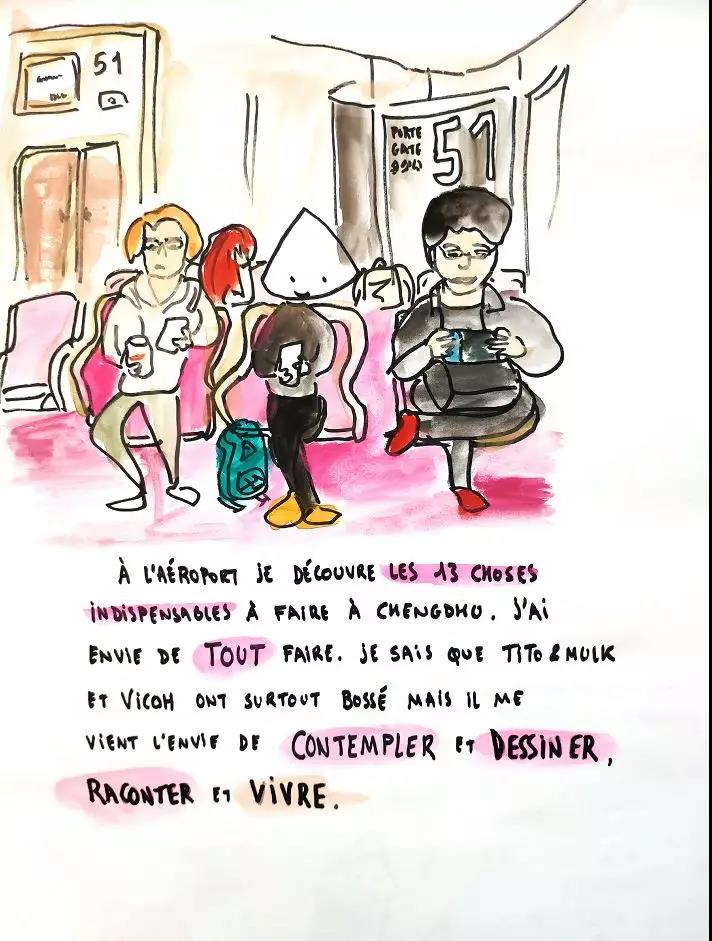 51
PORTE
GATE
51
À L'AÉROPORT JE DÉCOUVRE LES 13 CHOSES
INDISPENSABLES À FAIRE À CHENGDHU. J'AI
ENVIE DE TOUT FAIRE. JE SAIS QUE TITO & MULK
ET VICOH ONT SURTOUT BOSSÉ MAIS IL ME
VIENT L'ENVIE DE CONTEMPLER ET DESSINER,
RACONTER ET VIVRE.